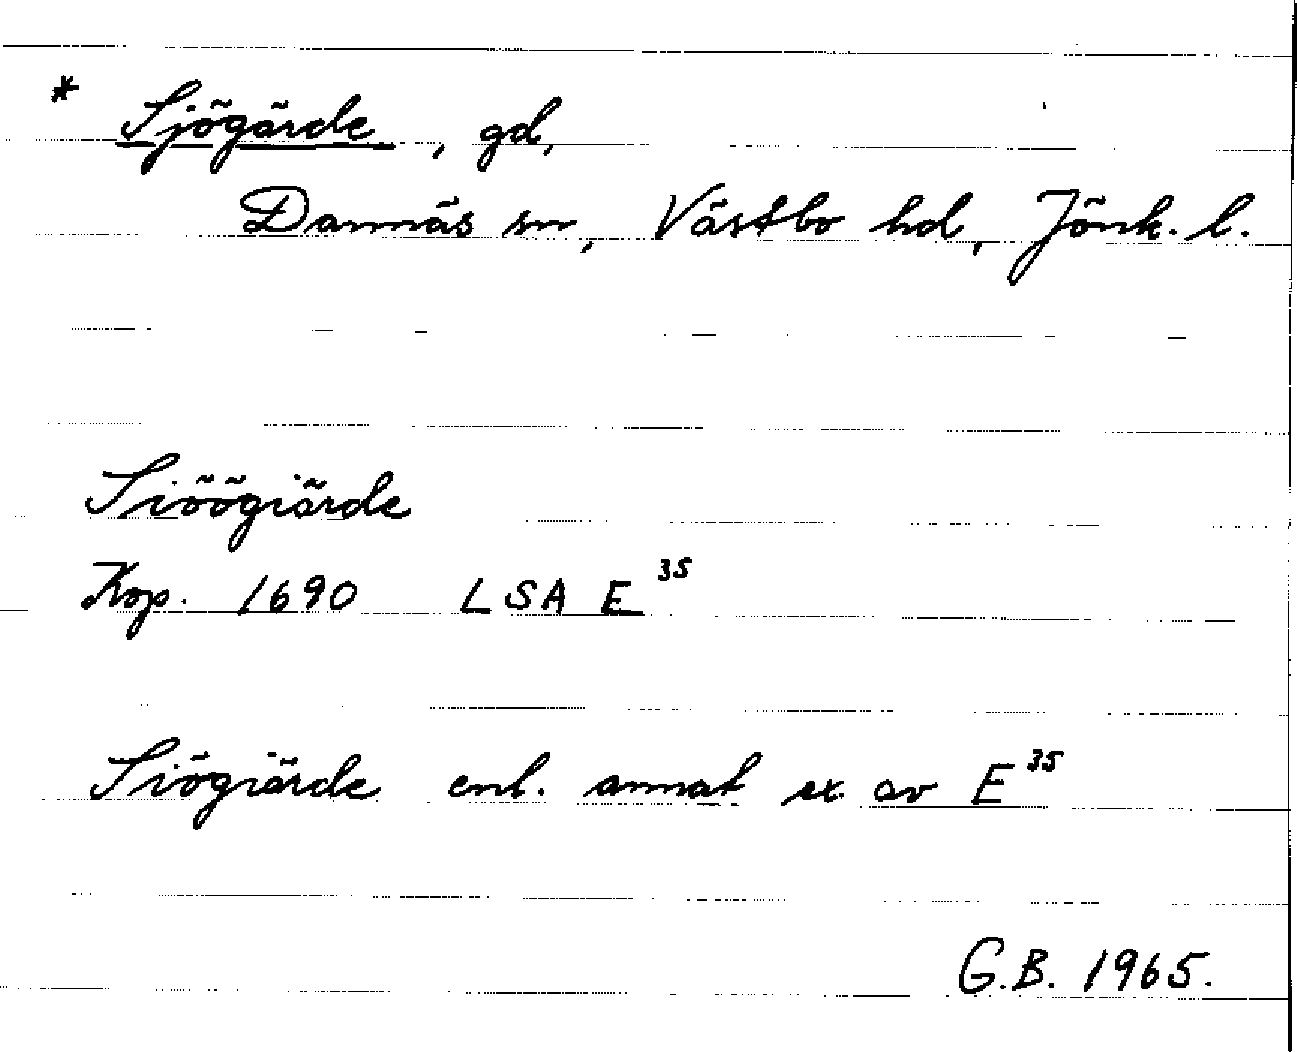 * Sjögärde, gd,
Dannäs sn, Västbo hd, Jönk. l.
Siöögiärde
Kop. 1690 LSA E 35
Siögiärde enl. annat ex av E 35
G.B. 1965.